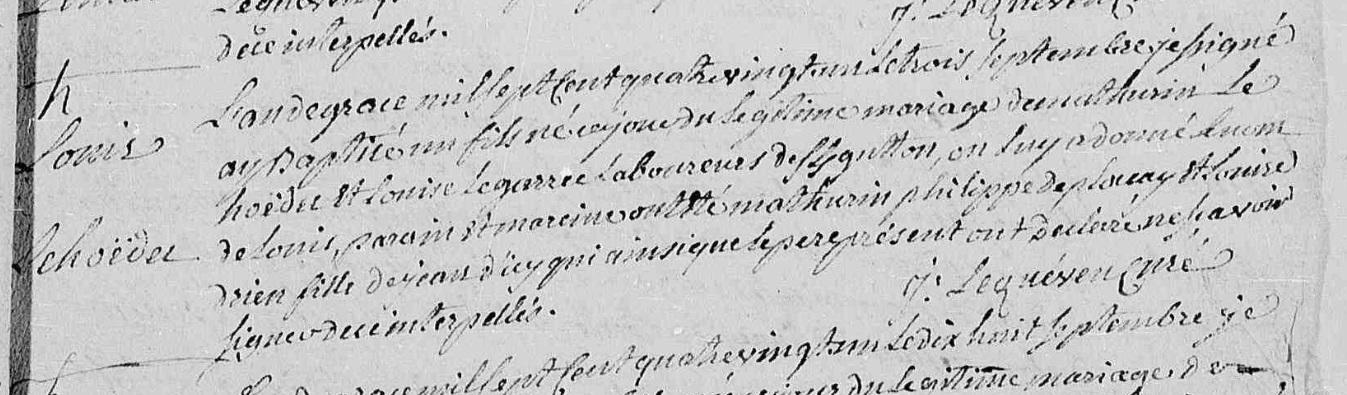 deceinterpellés.
j: Leguéven
h
L'an de grace mil sept Cent quatre vingt un Le trois septembre je signé
Louis
ay Baptisé un fils né ce jour du Legitime mariage de mathurin Le
hoëdec et Louise Legarrec Laboureurs de st gutton, on luy a donné Le nom
Lehoëdec
de Louis, parain et maraine ont été mathurin philippe de plouay et Louise
drien fille de jean d'icy qui ainsi que le pere présent ont declaré ne sçavoir
signer de ce interpellés.
j: Leguéven Curé
mil sept Cent quatre vingt un Le dix huit septembre je
du Legitime mariage de